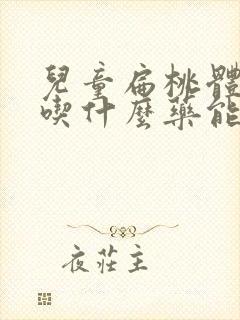 兒童扁桃體
喫什麼藥能
夜莊主